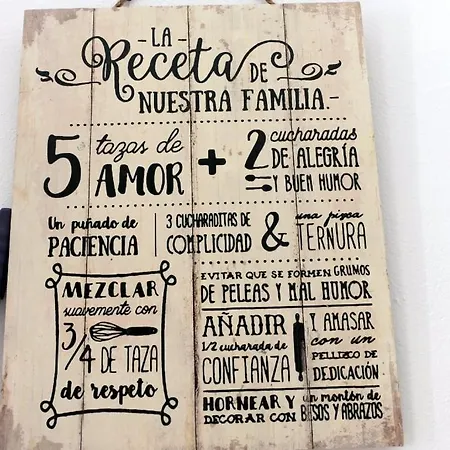 -LA-
Receta DE
NUESTRA FAMILIA.-
5 tazas de AMOR + 2 cucharadas DE ALEGRÍA Y BUEN HUMOR
Un puñado de PACIENCIA
3 CUCHARADITAS DE COMPLICIDAD & una pizca TERNURA
MEZCLAR
suavemente con
3/4 DE TAZA
de respeto
EVITAR QUE SE FORMEN GRUMOS
DE PELEAS Y MAL HUMOR
AÑADIR
1/2 cucharada de
CONFIANZA
Y AMASAR
con un
PELLIZCO DE
DEDICACIÓN
HORNEAR Y
DECORAR CON
un montón de
BESOS Y ABRAZOS